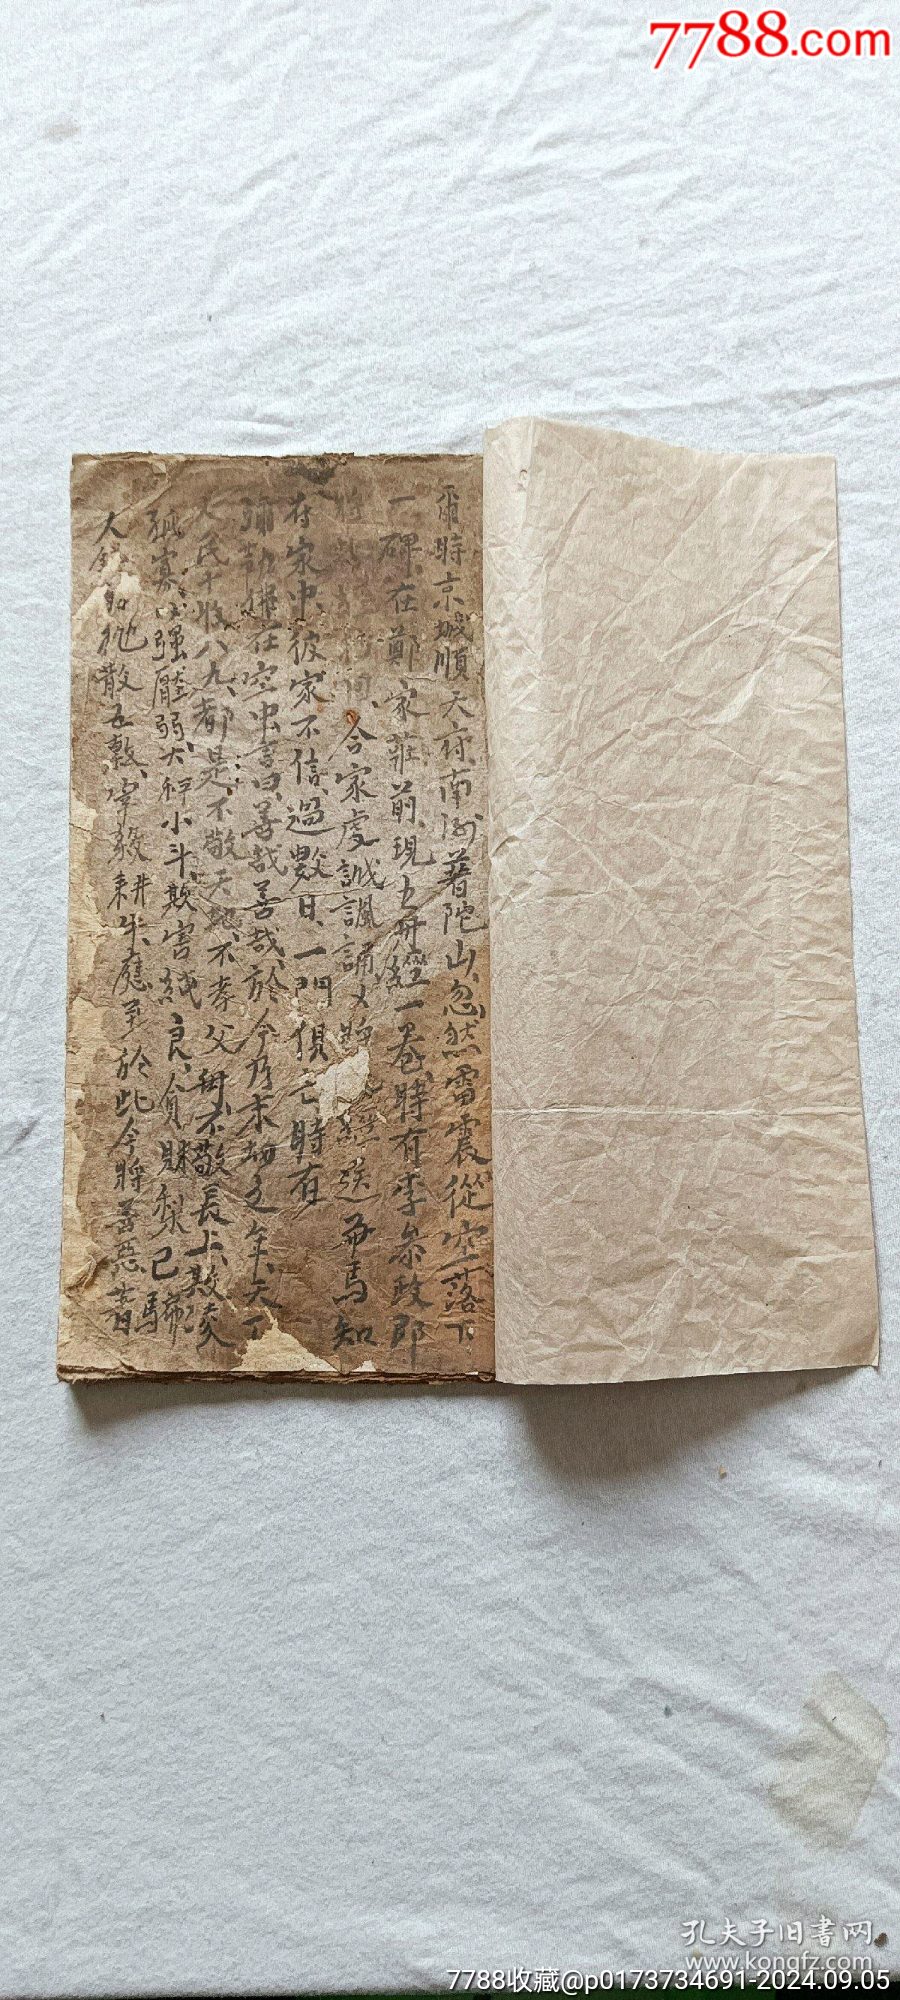 7788.com
爾時京城順天府南海普陀山忽然雷震從空落下
一碑在鄭家莊前現五册經一卷時有李參政郎
將 合家虔誠諷誦又將 經送與馬知
在家中彼家不信過數日一門俱亡時有
彌勒佛在空中言曰善哉善哉於今乃末劫之年天下
人民十收八九都是不敬天地不孝父母不敬長上欺凌
孤寡以强壓弱大秤小斗欺害純良貪財利己
人 抛散五穀宰殺耕牛應 於此今將善惡書
孔夫子旧書网
www.kongfz.com
7788收藏@p0173734691-2024.09.05